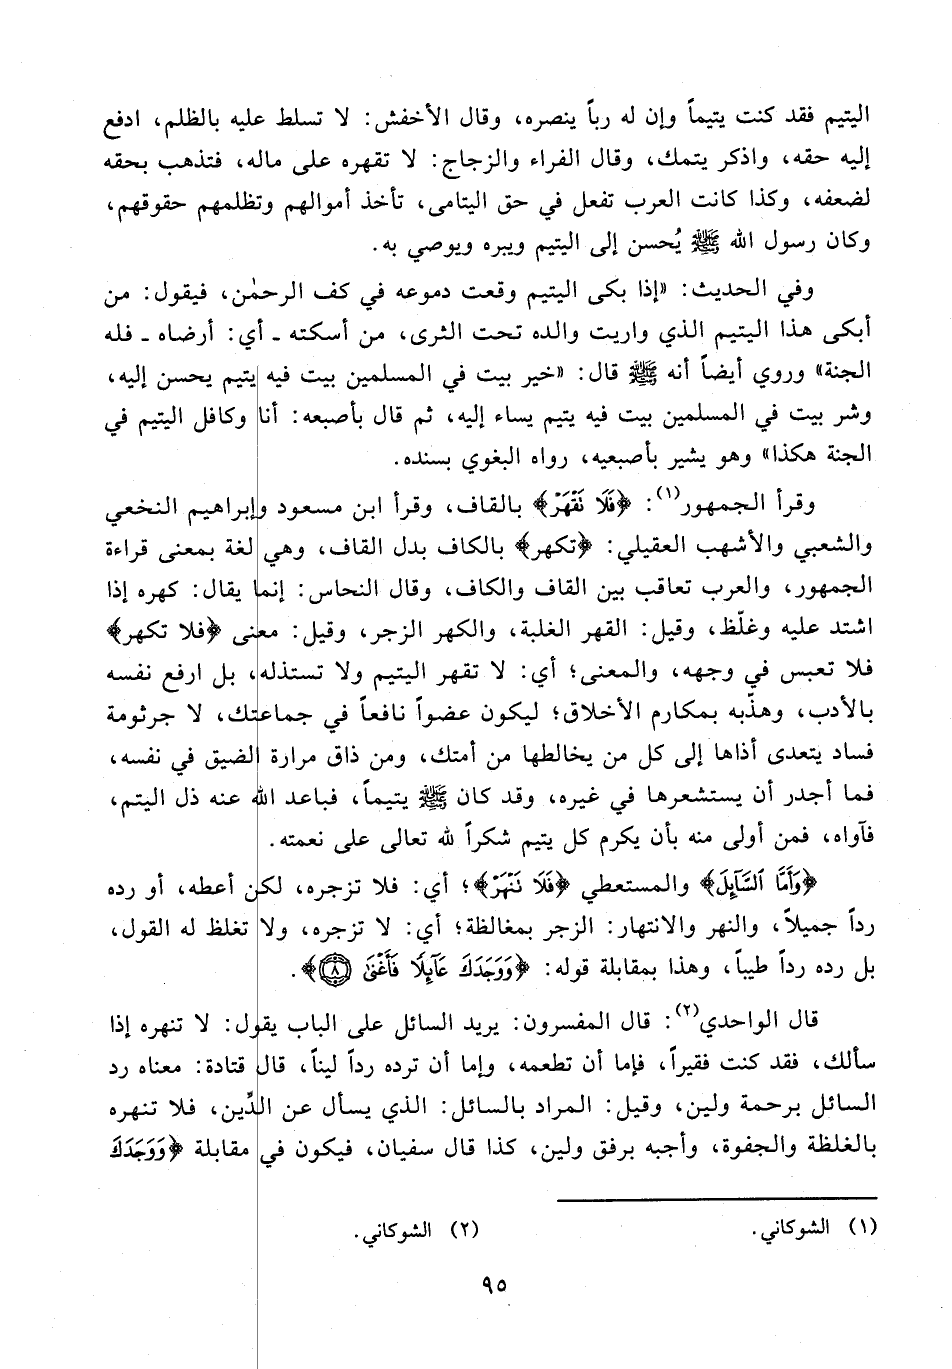 اليتيم فقد كنت يتيماً وإن له رباً ينصره، وقال الأخفش: لا تسلط عليه بالظلم، ادفع
إليه حقه، واذكر يتمك، وقال الفراء والزجاج: لا تقهره على ماله، فتذهب بحقه
لضعفه، وكذا كانت العرب تفعل في حق اليتامى، تأخذ أموالهم وتظلمهم حقوقهم،
وكان رسول الله ﷺ يُحسن إلى اليتيم ويبره ويوصي به.
وفي الحديث: «إذا بكى اليتيم وقعت دموعه في كف الرحمٰن، فيقول: من
أبكى هذا اليتيم الذي واريت والده تحت الثرى، من أسكته ـ أي: أرضاه ـ فله
الجنة» وروي أيضاً أنه ﷺ قال: «خير بيت في المسلمين بيت فيه يتيم يحسن إليه،
وشر بيت في المسلمين بيت فيه يتيم يساء إليه، ثم قال بأصبعه: أنا وكافل اليتيم في
الجنة هكذا» وهو يشير بأصبعيه، رواه البغوي بسنده.
وقرأ الجمهور(١): ﴿فَلَا نَقْهَرْ﴾ بالقاف، وقرأ ابن مسعود وإبراهيم النخعي
والشعبي والأشهب العقيلي: ﴿تكهر﴾ بالكاف بدل القاف، وهي لغة بمعنى قراءة
الجمهور، والعرب تعاقب بين القاف والكاف، وقال النحاس: إنما يقال: كهره إذا
اشتد عليه وغلّظ، وقيل: القهر الغلبة، والكهر الزجر، وقيل: معنى ﴿فلا تكهر﴾
فلا تعبس في وجهه، والمعنى؛ أي: لا تقهر اليتيم ولا تستذله، بل ارفع نفسه
بالأدب، وهذّبه بمكارم الأخلاق؛ ليكون عضواً نافعاً في جماعتك، لا جرثومة
فساد يتعدى أذاها إلى كل من يخالطها من أمتك، ومن ذاق مرارة الضيق في نفسه،
فما أجدر أن يستشعرها في غيره، وقد كان ﷺ يتيماً، فباعد الله عنه ذل اليتم،
فآواه، فمن أولى منه بأن يكرم كل يتيم شكراً لله تعالى على نعمته.
﴿وَأَمَّا ٱلسَّآئِلَ﴾ والمستعطي ﴿فَلَا نَنْهَرْ﴾؛ أي: فلا تزجره، لكن أعطه، أو رده
رداً جميلاً، والنهر والانتهار: الزجر بمغالظة؛ أي: لا تزجره، ولا تغلظ له القول،
بل رده رداً طيباً، وهذا بمقابلة قوله: ﴿وَوَجَدَكَ عَآئِلًا فَأَغْنَىٰ ٨﴾.
قال الواحدي(٢): قال المفسرون: يريد السائل على الباب يقول: لا تنهره إذا
سألك، فقد كنت فقيراً، فإما أن تطعمه، وإما أن ترده رداً ليناً، قال قتادة: معناه رد
السائل برحمة ولين، وقيل: المراد بالسائل: الذي يسأل عن الدِّين، فلا تنهره
بالغلظة والجفوة، وأجبه برفق ولين، كذا قال سفيان، فيكون في مقابلة ﴿وَوَجَدَكَ
(١) الشوكاني. (٢) الشوكاني.
٩٥